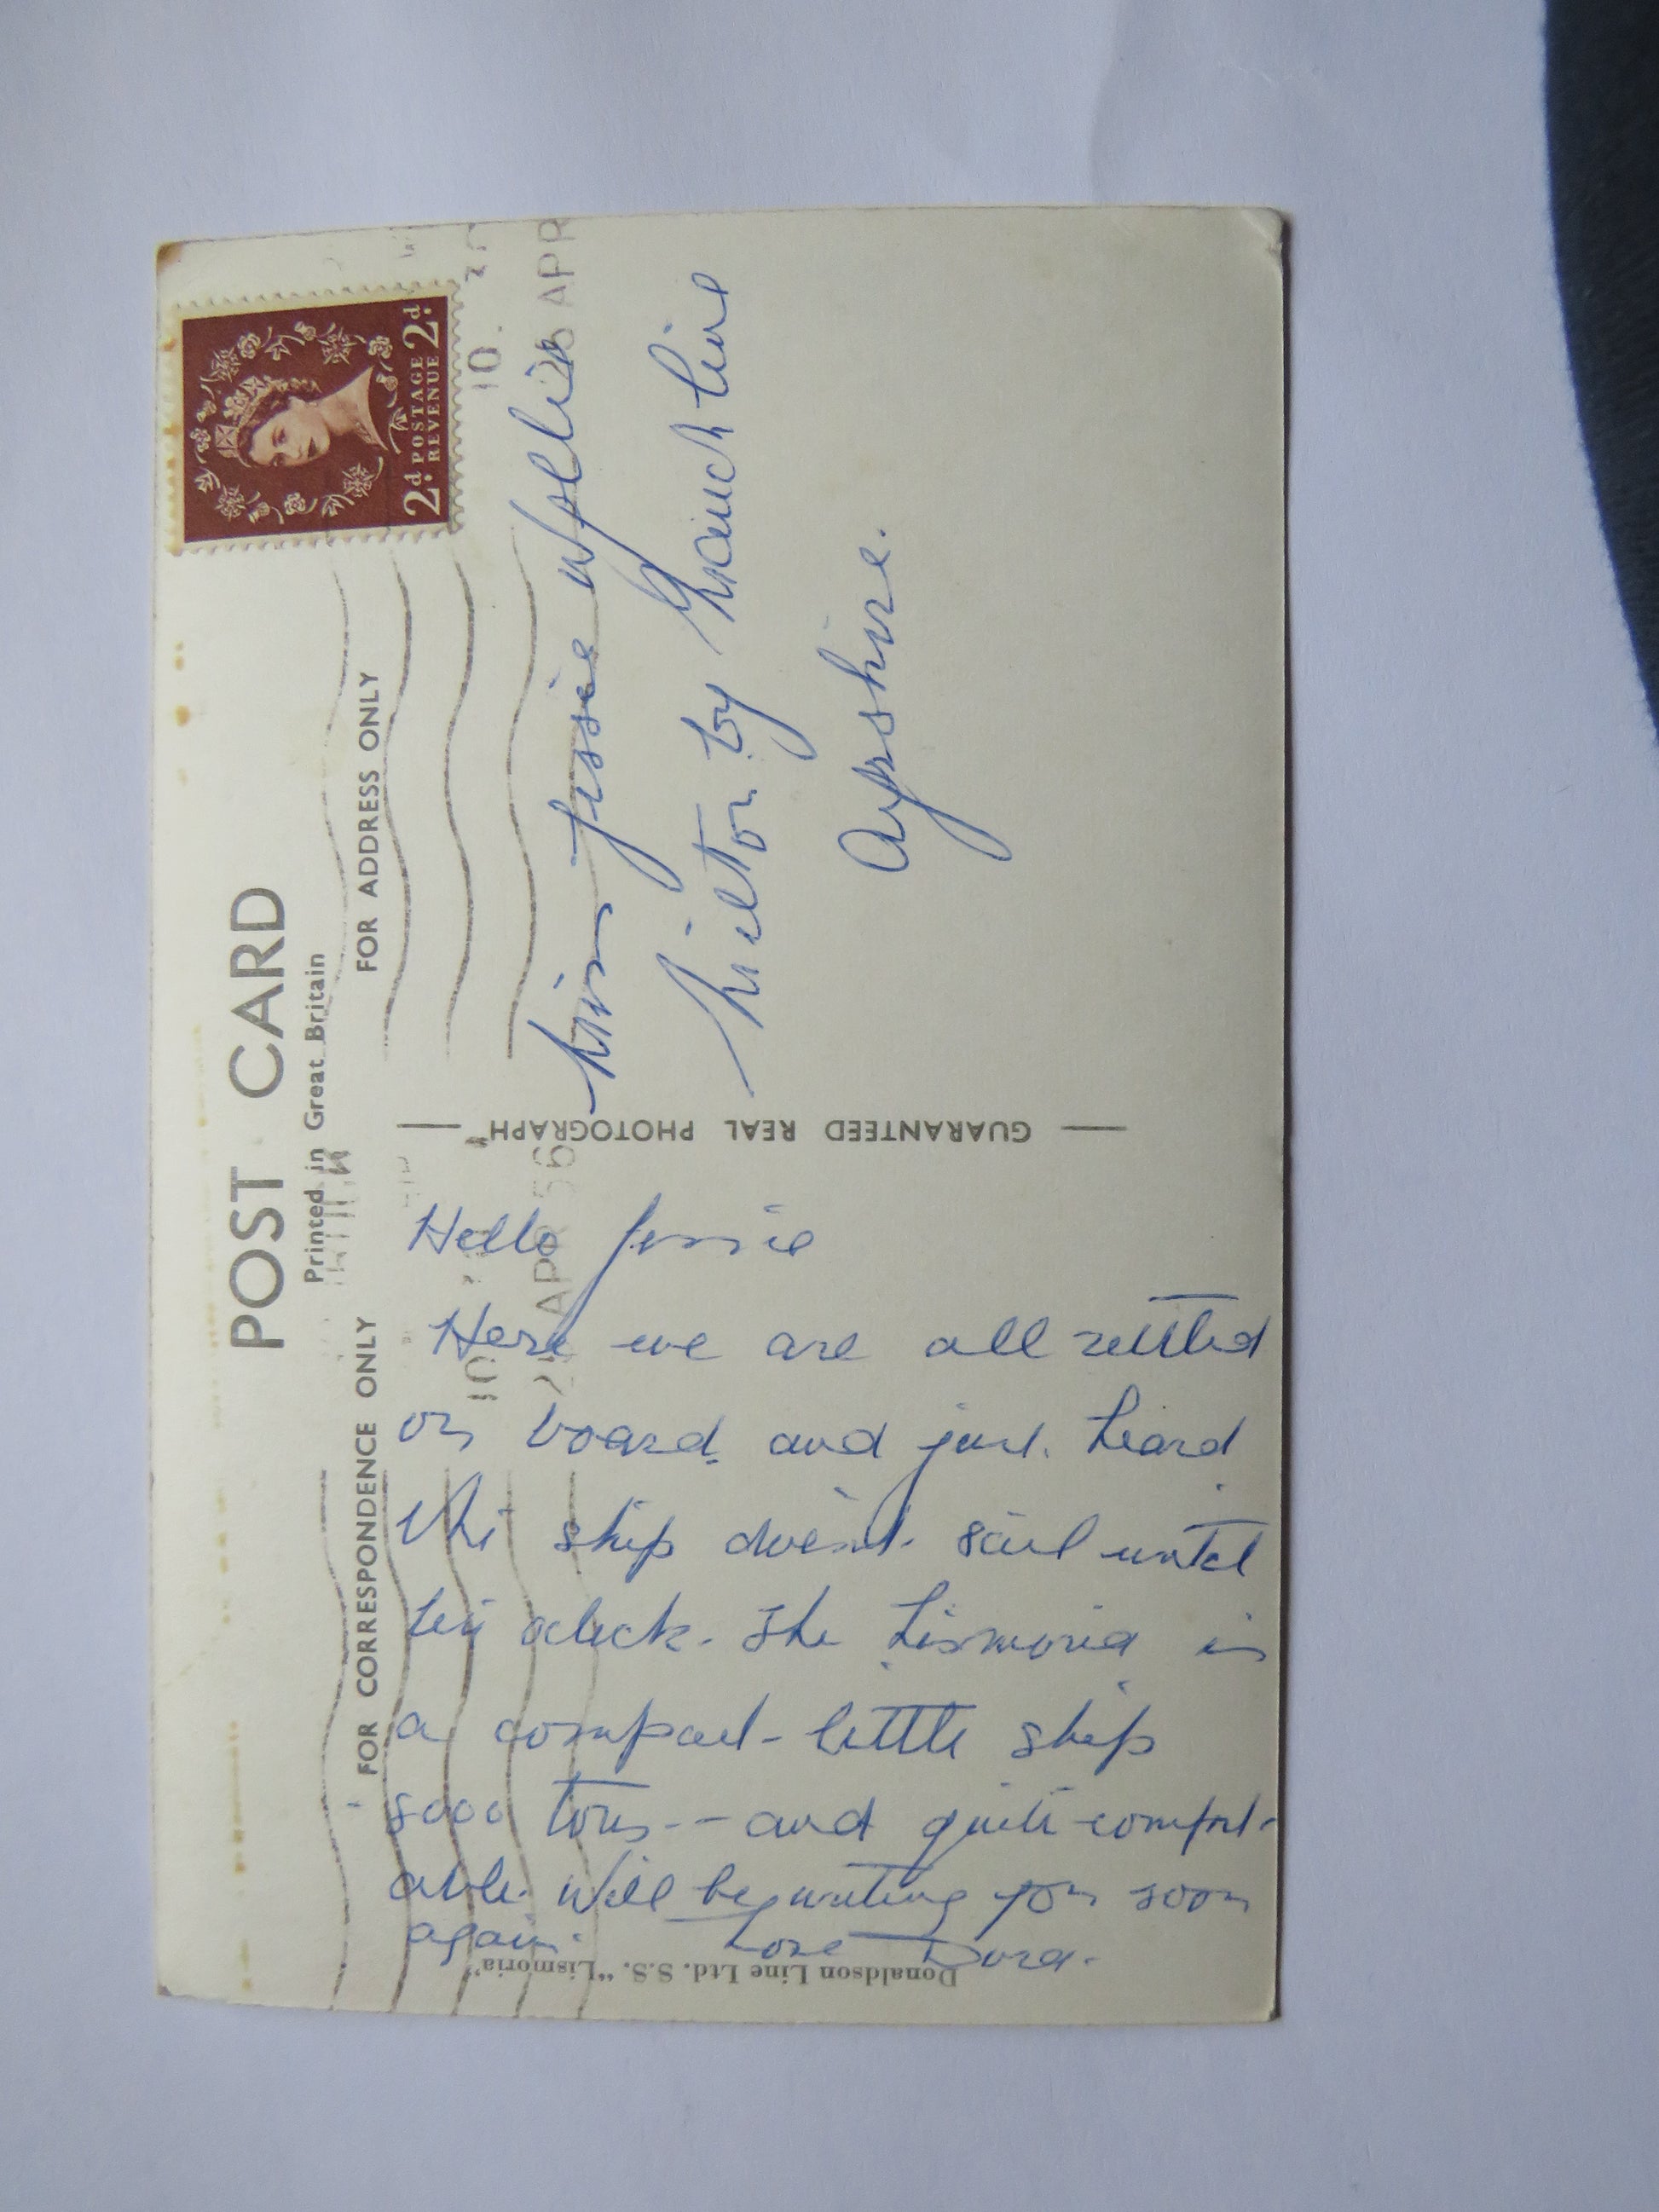 POST CARD
Printed in Great Britain
FOR CORRESPONDENCE ONLY
FOR ADDRESS ONLY
2d POSTAGE REVENUE 2d
10
APR 56
10.
28 APR
GUARANTEED REAL PHOTOGRAPH
Hello Jessie
Here we are all settled
on board and just heard
the ship doesn't sail until
ten oclock. The Lismoria is
a compact little ship
8000 tons -- and quite comfort-
able. Will be writing you soon
again. Love Dora.
Miss Jessie
Milton by Mauchline
Ayrshire.
Donaldson Line Ltd. S.S. "Lismoria"